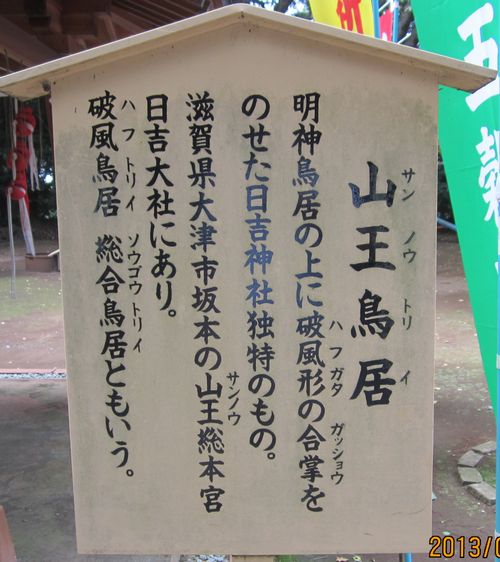 山王鳥居
サンノウトリイ
明神鳥居の上に破風形の合掌を
ハフガタ ガッショウ
のせた日吉神社独特のもの。
滋賀県大津市坂本の山王総本宮
サンノウ
日吉大社にあり。
破風鳥居 総合鳥居ともいう。
ハフトリイ ソウゴウトリイ
五穀
2013/0